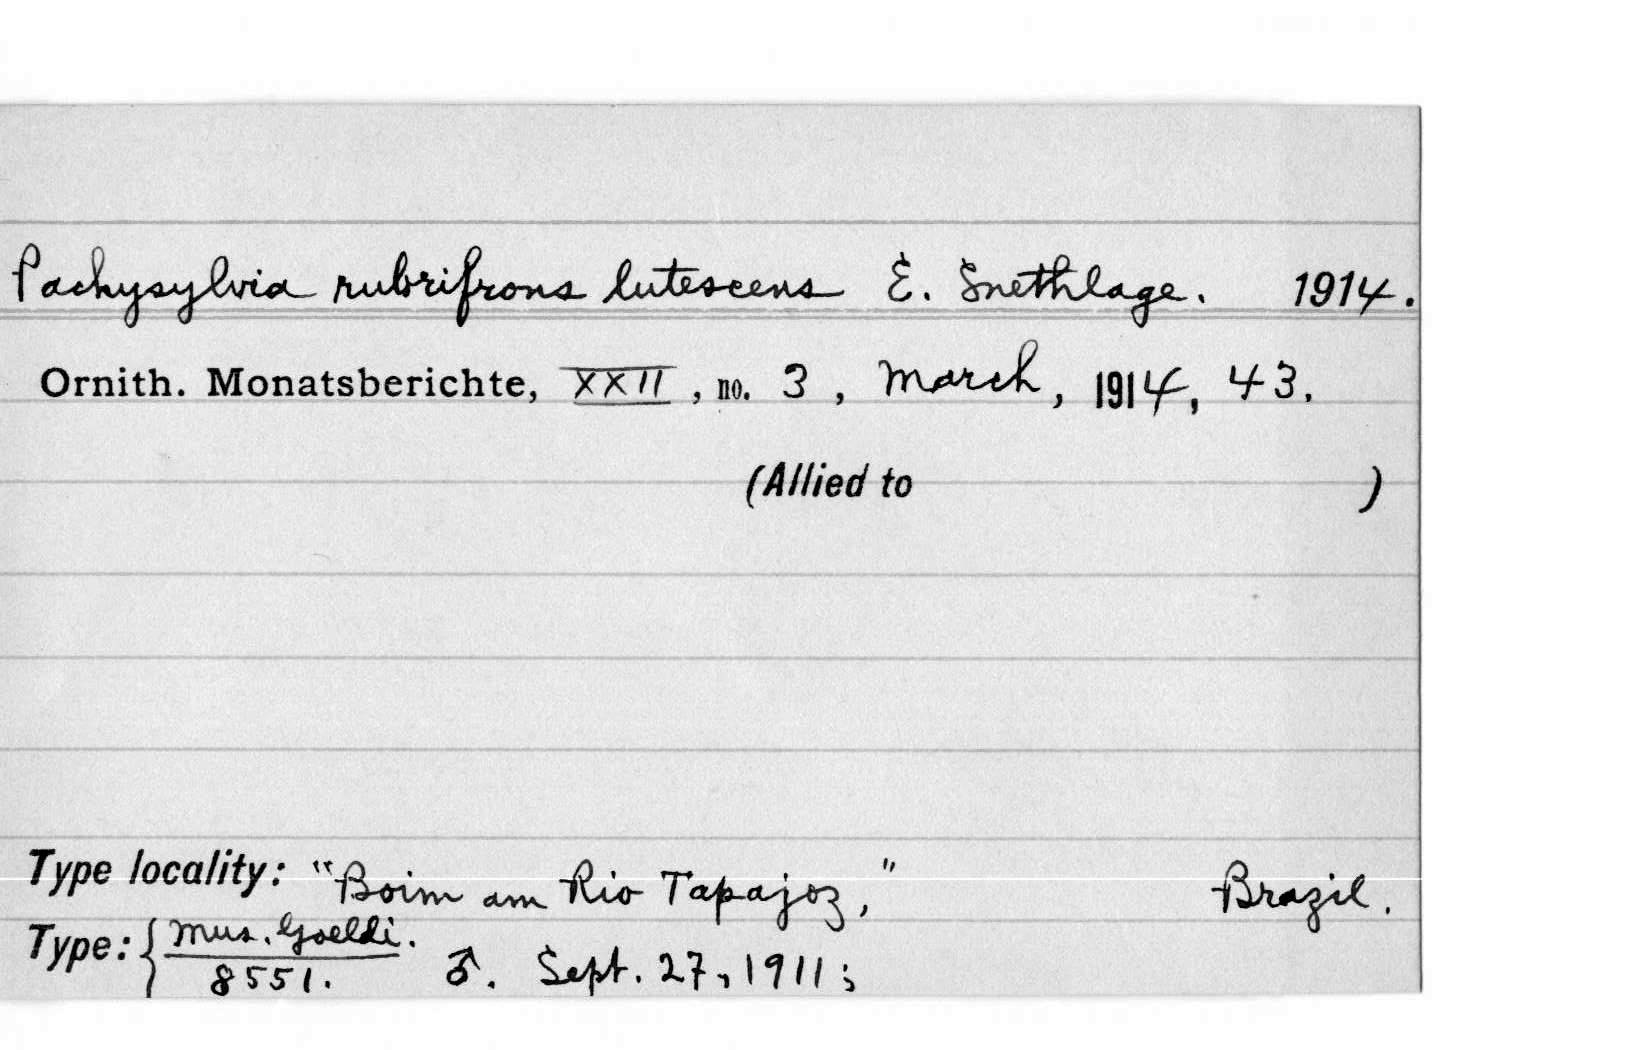 Pachysylvia rubrifrons lutescens E. Snethlage. 1914.
Ornith. Monatsberichte, XXII, no. 3, March, 1914, 43.
(Allied to )
Type locality: "Boim am Rio Tapajoz," Brazil.
Type: { Mus. Goeldi.
8551. ♂. Sept. 27, 1911;